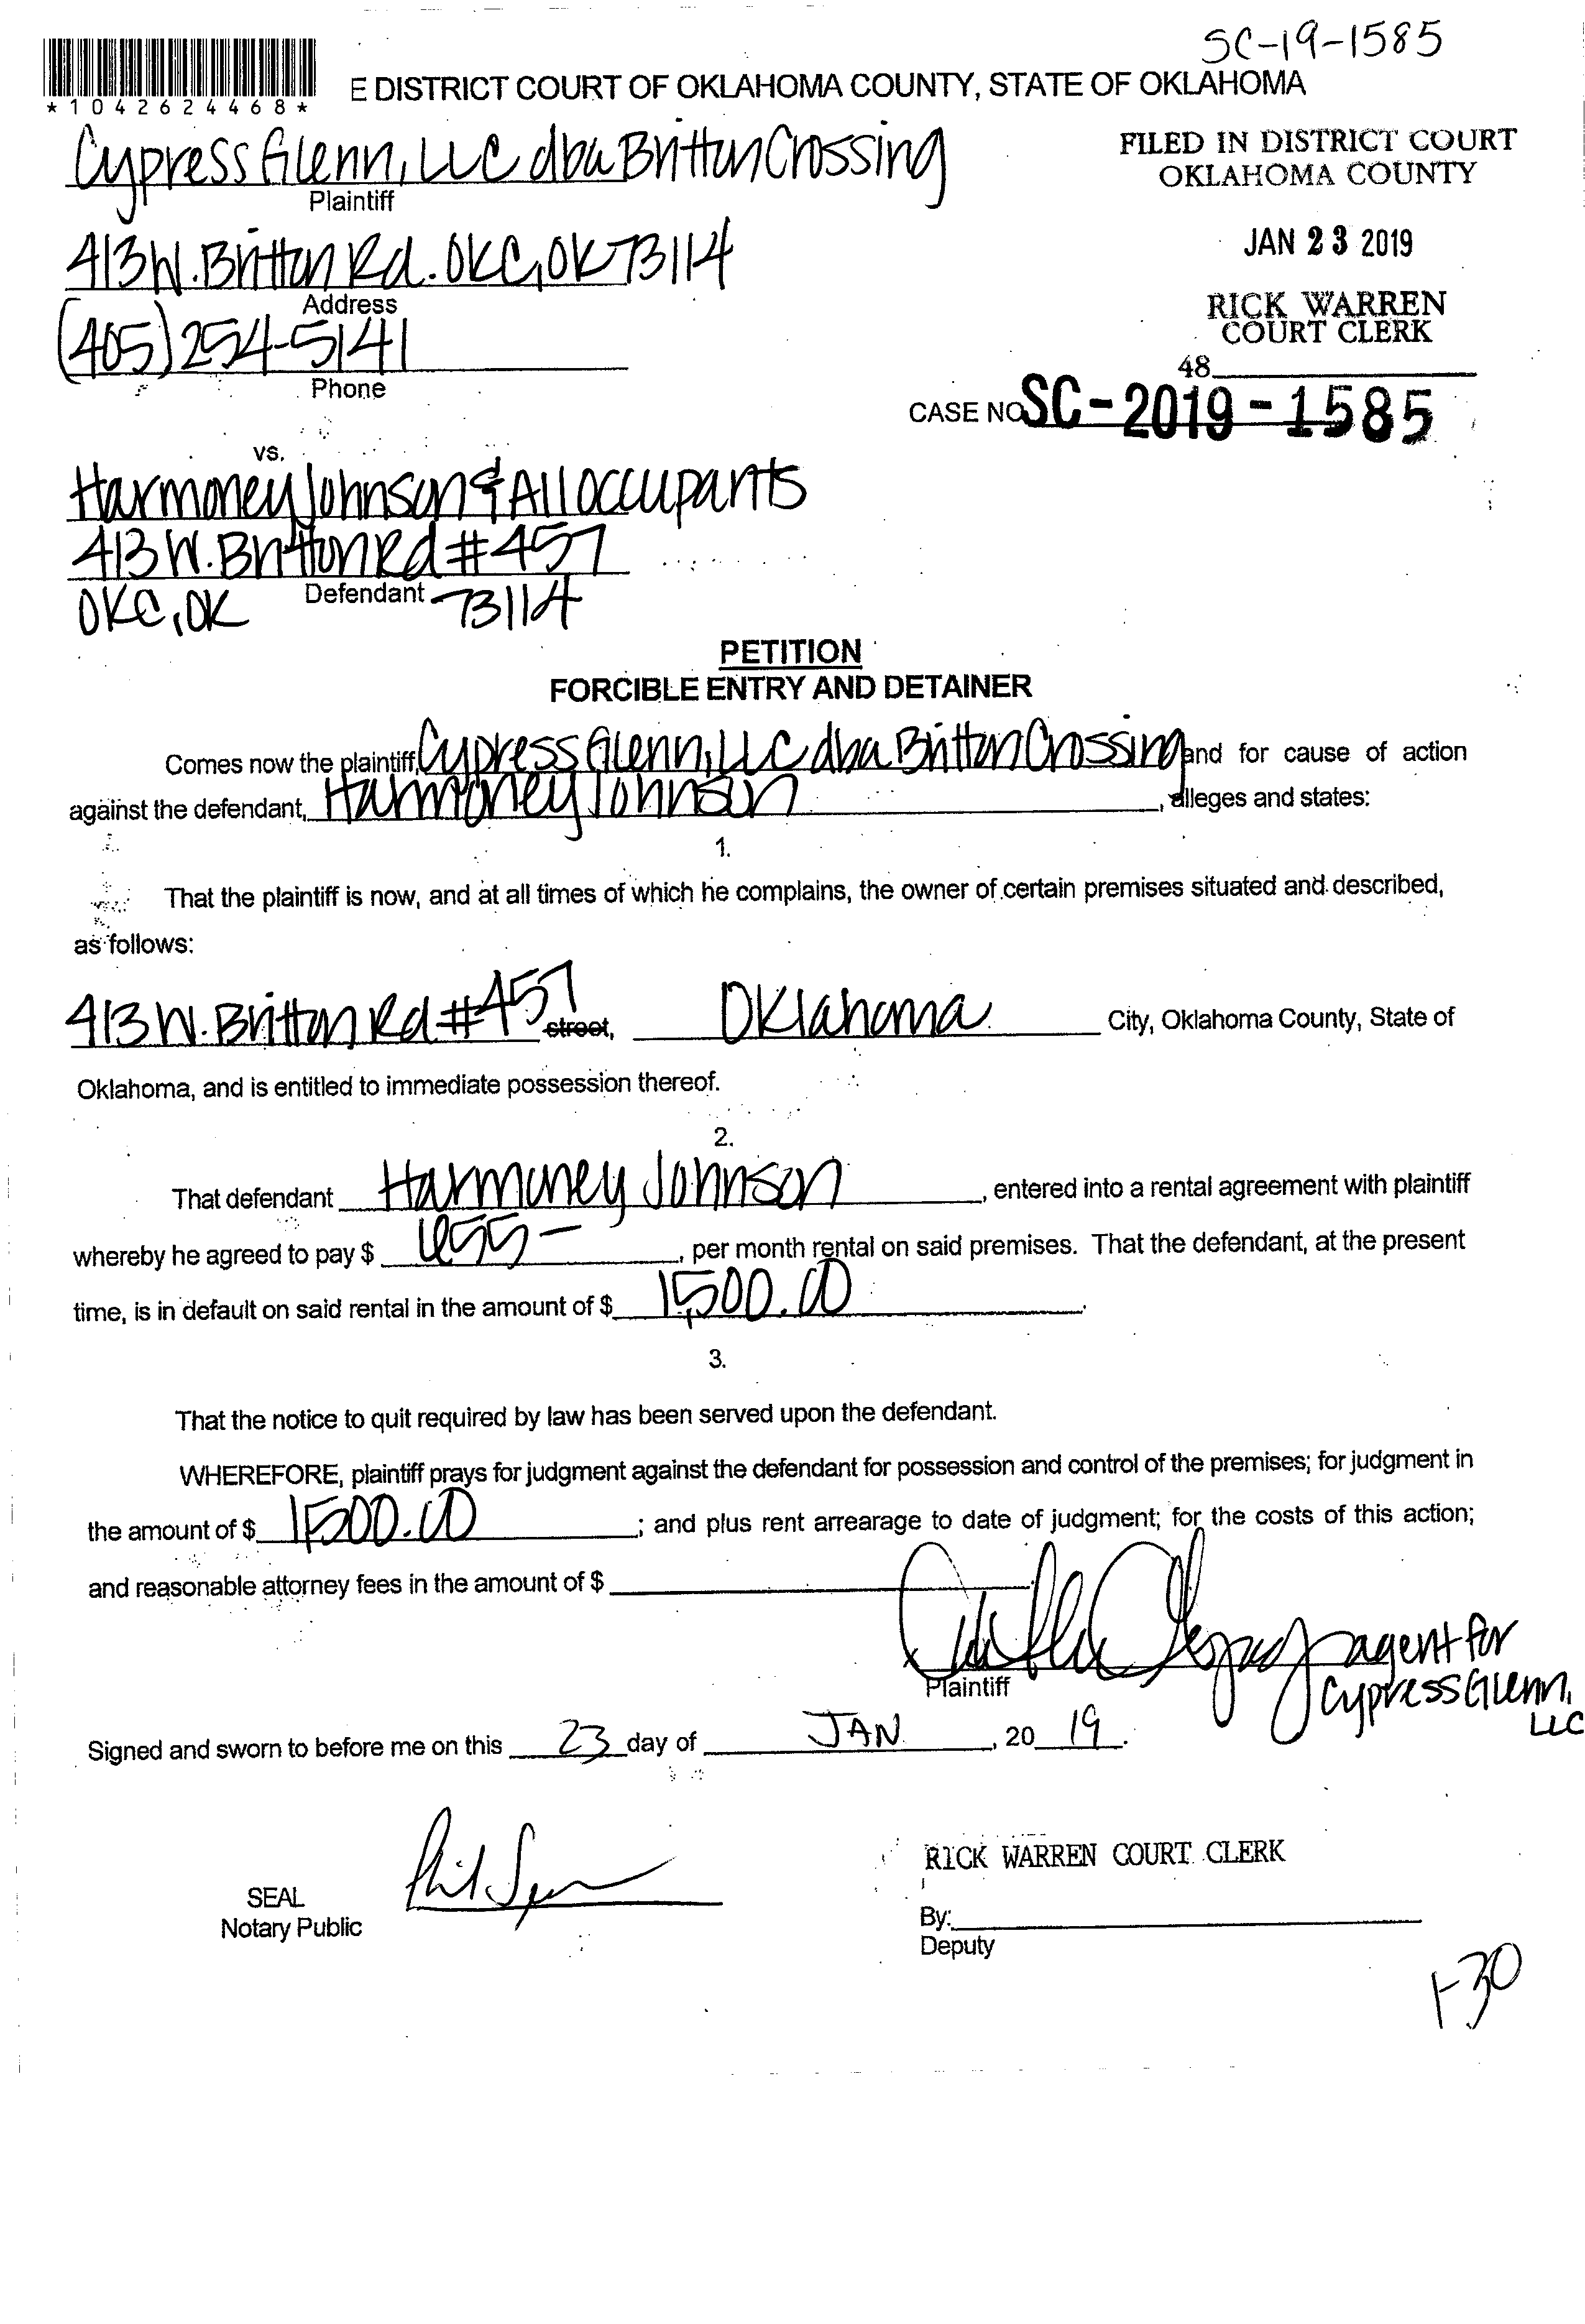 SC-19-1585
*1042624468*
E DISTRICT COURT OF OKLAHOMA COUNTY, STATE OF OKLAHOMA
Cypress Glenn, LLC dba Britton Crossing
Plaintiff
FILED IN DISTRICT COURT
OKLAHOMA COUNTY
413 W. Britton Rd. OKC, OK 73114
Address
JAN 23 2019
(405) 254-5141
Phone
RICK WARREN
COURT CLERK
48
CASE NO. SC-2019-1585
vs.
Harmoney Johnson & All occupants
413 W. Britton Rd #457
Defendant
OKC, OK 73114
PETITION
FORCIBLE ENTRY AND DETAINER
Comes now the plaintiff, Cypress Glenn, LLC dba Britton Crossing and for cause of action
against the defendant, Harmoney Johnson, alleges and states:
1.
That the plaintiff is now, and at all times of which he complains, the owner of certain premises situated and described,
as follows:
413 W. Britton Rd #457 street, Oklahoma City, Oklahoma County, State of
Oklahoma, and is entitled to immediate possession thereof.
2.
That defendant Harmoney Johnson, entered into a rental agreement with plaintiff
whereby he agreed to pay $ 655-, per month rental on said premises. That the defendant, at the present
time, is in default on said rental in the amount of $ 1,500.00.
3.
That the notice to quit required by law has been served upon the defendant.
WHEREFORE, plaintiff prays for judgment against the defendant for possession and control of the premises; for judgment in
the amount of $ 1500.00; and plus rent arrearage to date of judgment; for the costs of this action;
and reasonable attorney fees in the amount of $
agent for
Cypress Glenn,
LLC
Plaintiff
Signed and sworn to before me on this 23 day of JAN, 20 19.
RICK WARREN COURT CLERK
SEAL
Notary Public
By:
Deputy
1-30